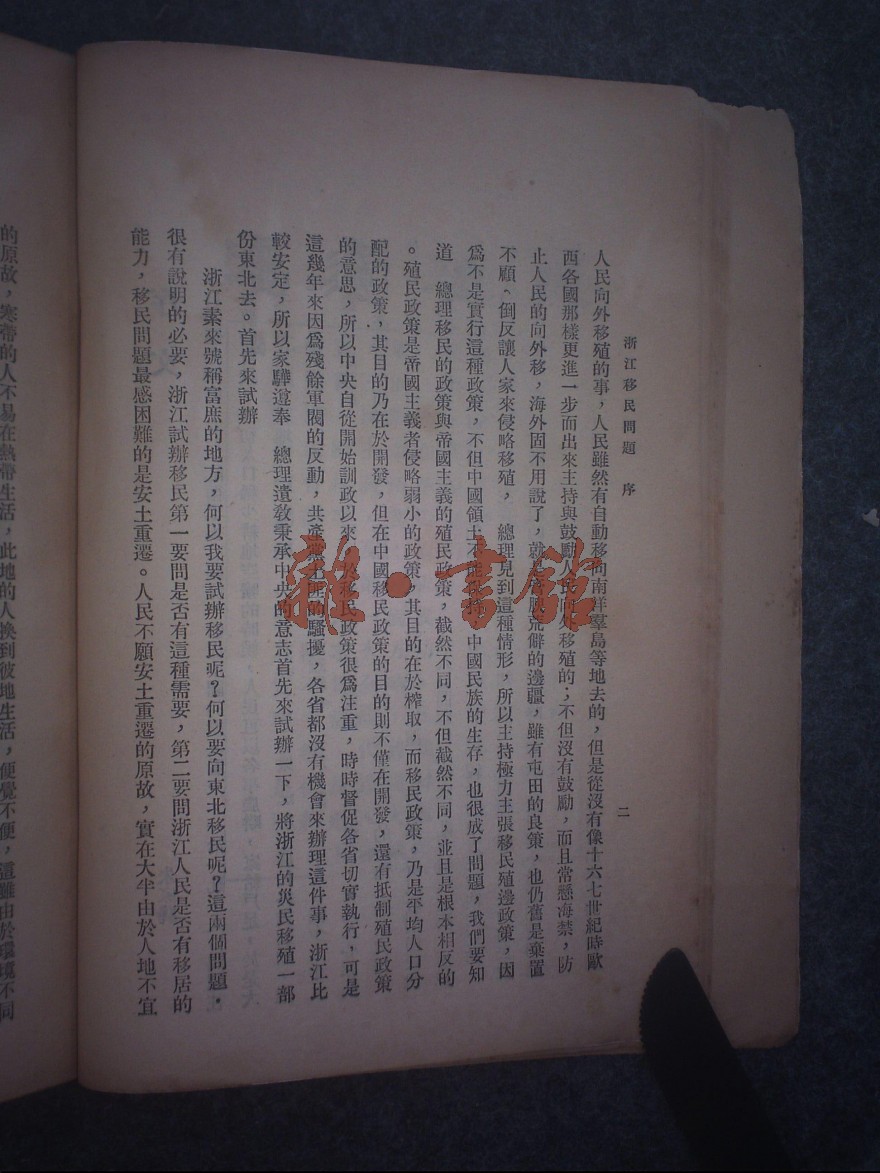 浙江移民問題 序
二
人民向外移殖的事，人民雖然有自動移向南洋羣島等地去的，但是從沒有像十六七世紀時歐
西各國那樣更進一步而出來主持與鼓勵人民向外移殖的；不但沒有鼓勵，而且常懸海禁，防
止人民的向外移，海外固不用說了，就是荒僻的邊疆，雖有屯田的良策，也仍舊是棄置
不顧、倒反讓人家來侵略移殖， 總理見到這種情形，所以主持極力主張移民殖邊政策，因
爲不是實行這種政策，不但中國領土不能保持，中國民族的生存，也很成了問題，我們要知
道 總理移民的政策與帝國主義的殖民政策，截然不同，不但截然不同，並且是根本相反的
。殖民政策是帝國主義者侵略弱小的政策，其目的在於榨取，而移民政策，乃是平均人口分
配的政策，其目的乃在於開發，但在中國移民政策的目的則不僅在開發，還有抵制殖民政策
的意思，所以中央自從開始訓政以來，於移民政策很爲注重，時時督促各省切實執行，可是
這幾年來因爲殘餘軍閥的反動，共產黨土匪的騷擾，各省都沒有機會來辦理這件事，浙江比
較安定，所以家驊遵奉 總理遺敎秉承中央的意志首先來試辦一下，將浙江的災民移殖一部
份東北去。首先來試辦
浙江素來號稱富庶的地方，何以我要試辦移民呢？何以要向東北移民呢？這兩個問題．
很有說明的必要，浙江試辦移民第一要問是否有這種需要，第二要問浙江人民是否有移居的
能力，移民問題最感困難的是安土重遷。人民不願安土重遷的原故，實在大半由於人地不宜
的原故，寒帶的人不易在熱帶生活，此地的人換到彼地生活，便覺不便，這雖由於環境不同
雜·書館